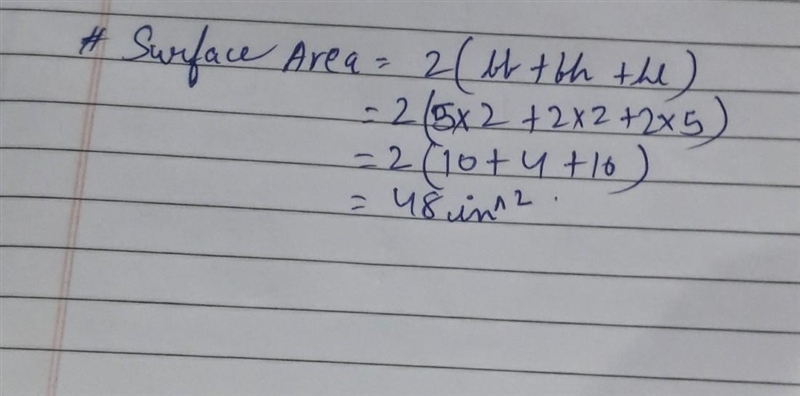 # Surface Area = 2(lb + bh + hl)
= 2(5×2 + 2×2 + 2×5)
= 2(10 + 4 + 10)
= 48 in^2.